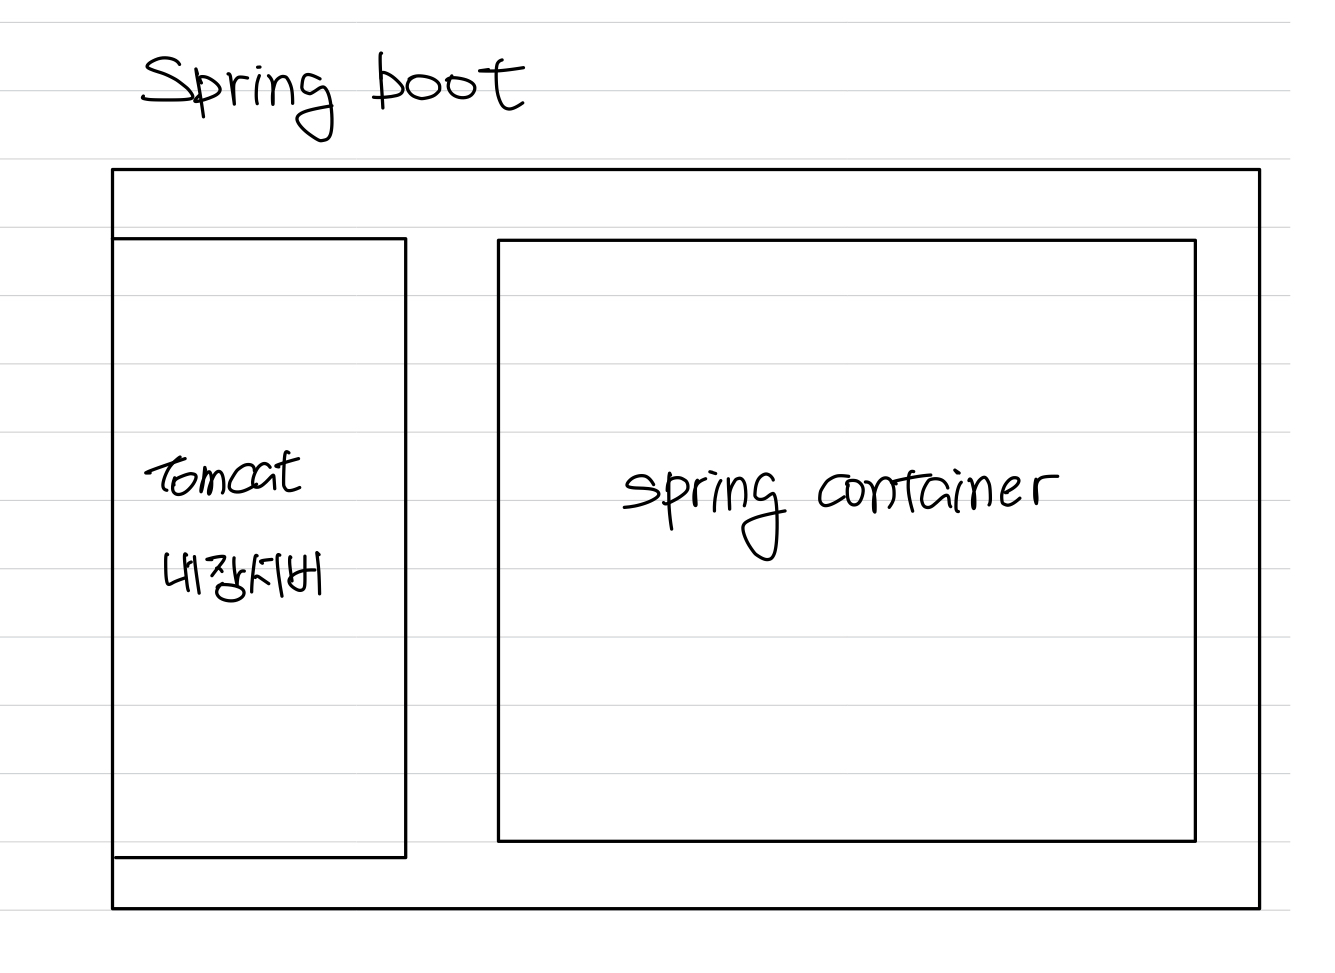 Spring boot
Tomcat
내장서버
spring container